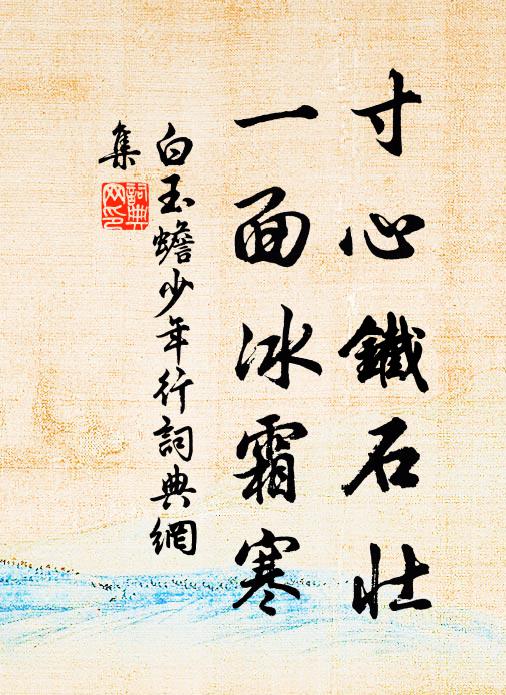 寸心鐵石壯
一面冰霜寒
白玉蟾少年行詞典網
集
詞典网印